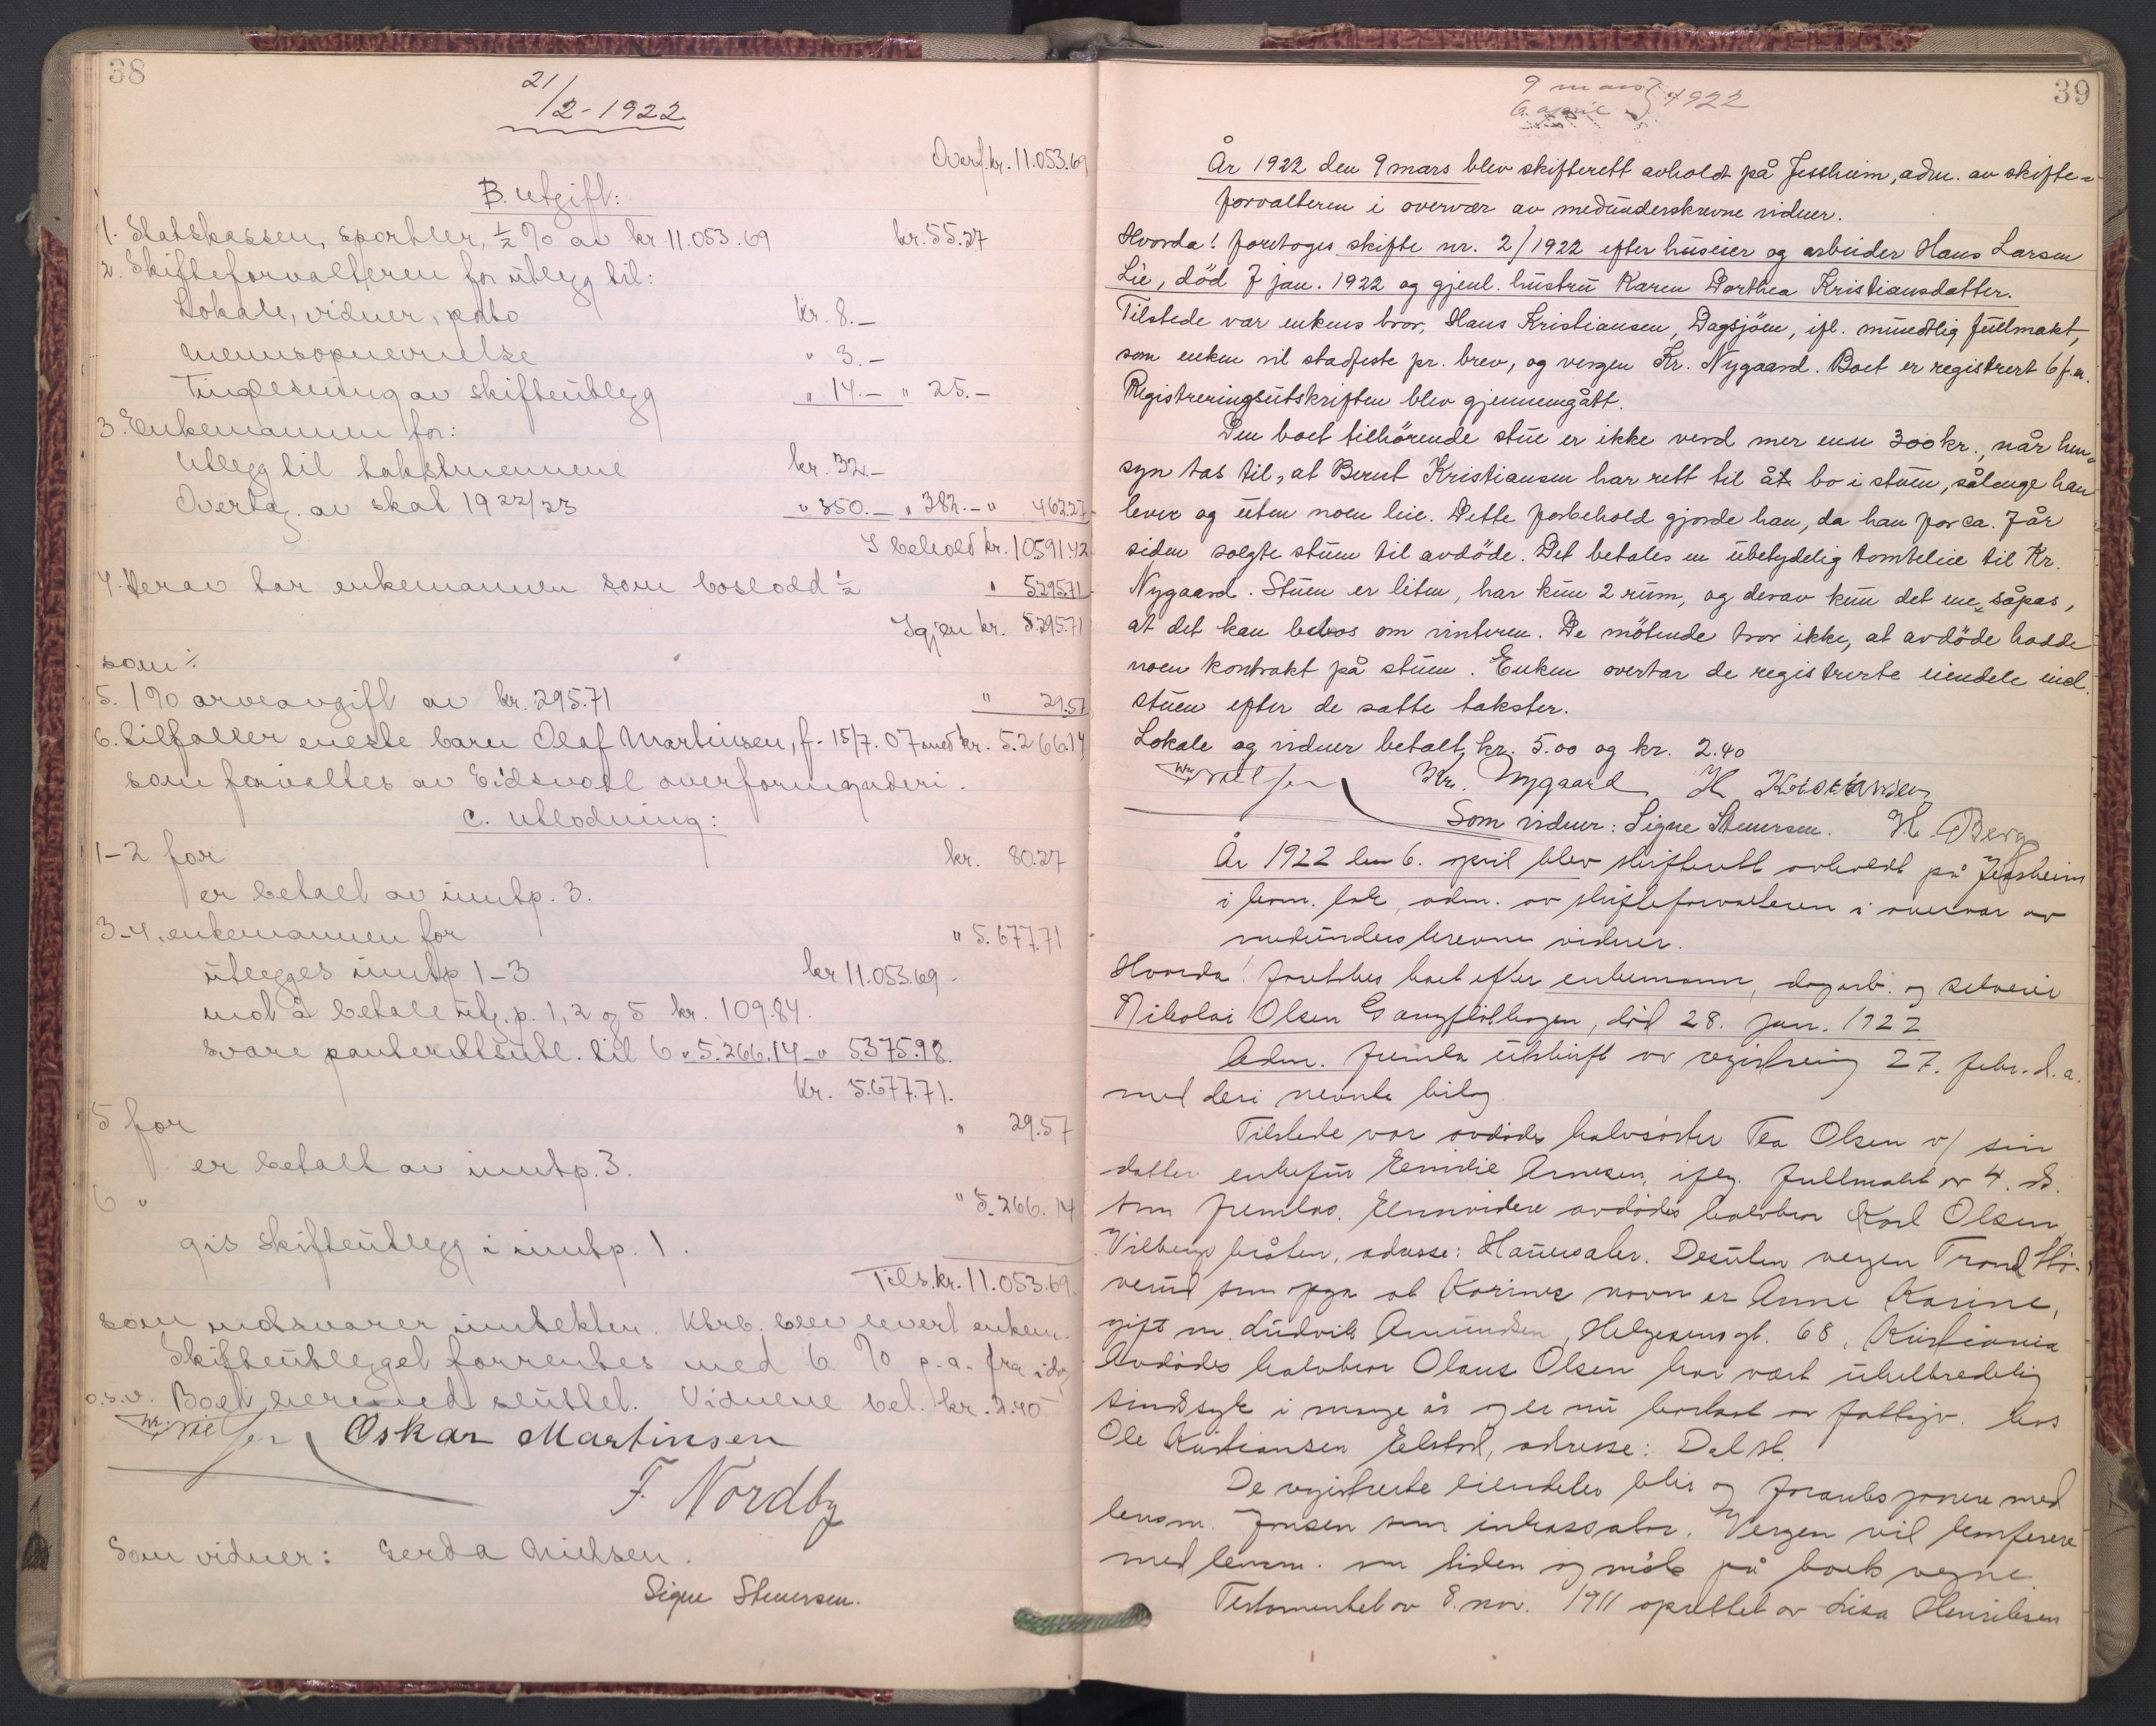 38
21/2-1922
Overf. kr. 11.053.69
B. Utgift:
1. Statskassen, sportler, ½ % av kr. 11.053.69 kr. 55.27
2. Skifteforvalteren for utlegg til:
Lokale, vidner, porto kr. 8.-
Mennsopnevnelse " 3.-
Tinglesning av skifteutlegg " 14.- " 25.-
3. Enkemannen for:
Utlegg til takstmennene kr. 32.-
Overtag. av skat 1922/23 " 350.- " 382.- " 462.27
I behold kr. 10591.42
4. Herav tar enkemannen som boslodd ½ " 5295.71
Igjen kr. 5.295.71
som ÷
5. 1 % arveavgift av kr. 295.71 " 29.57
6. tilfaller eneste barn Olaf Martinsen, f. 15/7.07 med kr. 5.266.14
som forvaltes av Eidsvoll overformynderi.
C. Utlodning:
1-2 for kr. 80.27
er betalt av inntp. 3.
3-4, enkemannen for " 5.677.71
utlegges inntp 1-3 kr 11.053.69.
mot å betale utg. p. 1, 2 og 5 kr. 109.84.
svare panterettsutl. til 6 " 5.266.14 " 5375.98.
Kr. 5.677.71.
5 for " 29.57
er betalt av inntp. 3.
6 " " 5.266.14
gis skifteutlegg i inntp. 1.
Tils. kr. 11.053.69.
som motsvarer inntekten. Utskr. blev levert enkem.
Skifteutlegget forrentes med 6 % p.a. fra idag
o.s.v. Boet hermed sluttet. Vidnene bet. kr. 2.40
Oskar Martinsen
F. Nordby
Som vidner: Gerda Nielsen.
Signe Stenersen.
39
9 mars
6. april } 1922
År 1922 den 9 mars blev skifterett avholdt på Jessheim, adm. av skifte-
forvalteren i overvær av medunderskrevne vidner.
Hvorda! foretoges skifte nr. 2/1922 efter huseier og arbeider Hans Larsen
Lie, död 7 jan. 1922 og gjenl. hustru Karen Dorthea Kristiansdatter.
Tilstede var enkens bror, Hans Kristiansen, Dagsjöen, ifl. muntlig fullmakt,
som enken vil stadfeste pr. brev, og vergen Kr. Nygaard. Boet er registrert 6 f.m.
Registreringsutskriften blev gjennemgått.
Den boet tilhörende stue er ikke verd mer enn 300 kr., når hen-
syn tas til, at Bernt Kristiansen har rett til åt bo i stuen, sålenge han
lever og uten noen leie. Dette forbehold gjorde han, da han for ca. 7 år
siden solgte stuen til avdöde. Det betales en ubetydelig tomteleie til Kr.
Nygaard. Stuen er liten, har kun 2 rum, og derav kun det ene såpas,
at det kan bebos om vinteren. De mötende tror ikke, at avdöde hadde
noen kontrakt på stuen. Enken overtar de registrerte eiendele incl.
stuen efter de satte takster.
Lokale og vidner betalt, kr. 5.00 og kr. 2.40
Kr. Nygaard H Kristiansen
Som vidner: Signe Stenersen. H. Berg
År 1922 den 6. april blev skifterett avholdt på Jessheim
i kom. lok, adm. av skifteforvalteren i overvær av
medunderskrevne vidner.
Hvorda! foretokes boet efter enkemann, dagarb. og selveier
Nikolai Olsen Gangflöthagen, död 28. jan. 1922
Adm. fremla utskrift av registrering 27. febr. d.a.
med deri nevnte bilag.
Tilstede var avdödes halvsöster Tea Olsen v/ sin
datter enkefru Emilie Arnesen, iflg. fullmakt av 4. ds.
som fremlas. Ennvidere avdödes halvbror Karl Olsen
Vilberg bråten, adresse: Hauersæter. Desuten vergen Trond
som opga at Karines navn er Anne Karine,
gift m. Ludvik Amundsen, Helgesens gt. 68, Kristiania
Avdödes halvbror Olaus Olsen har vært uhelbredelig
sindssyk i mange år og er nu bortsat av fattigv. hos
Ole Kristiansen Elstad, adresse: Dal st.
De registrerte eiendeler blir og
lensm. Jonsen som inkassator. Vergen vil konferere
med lensm. om tiden og möte på boets vegne.
Testamentet av 8. nov. 1911 oprettet av Lisa Henriksen